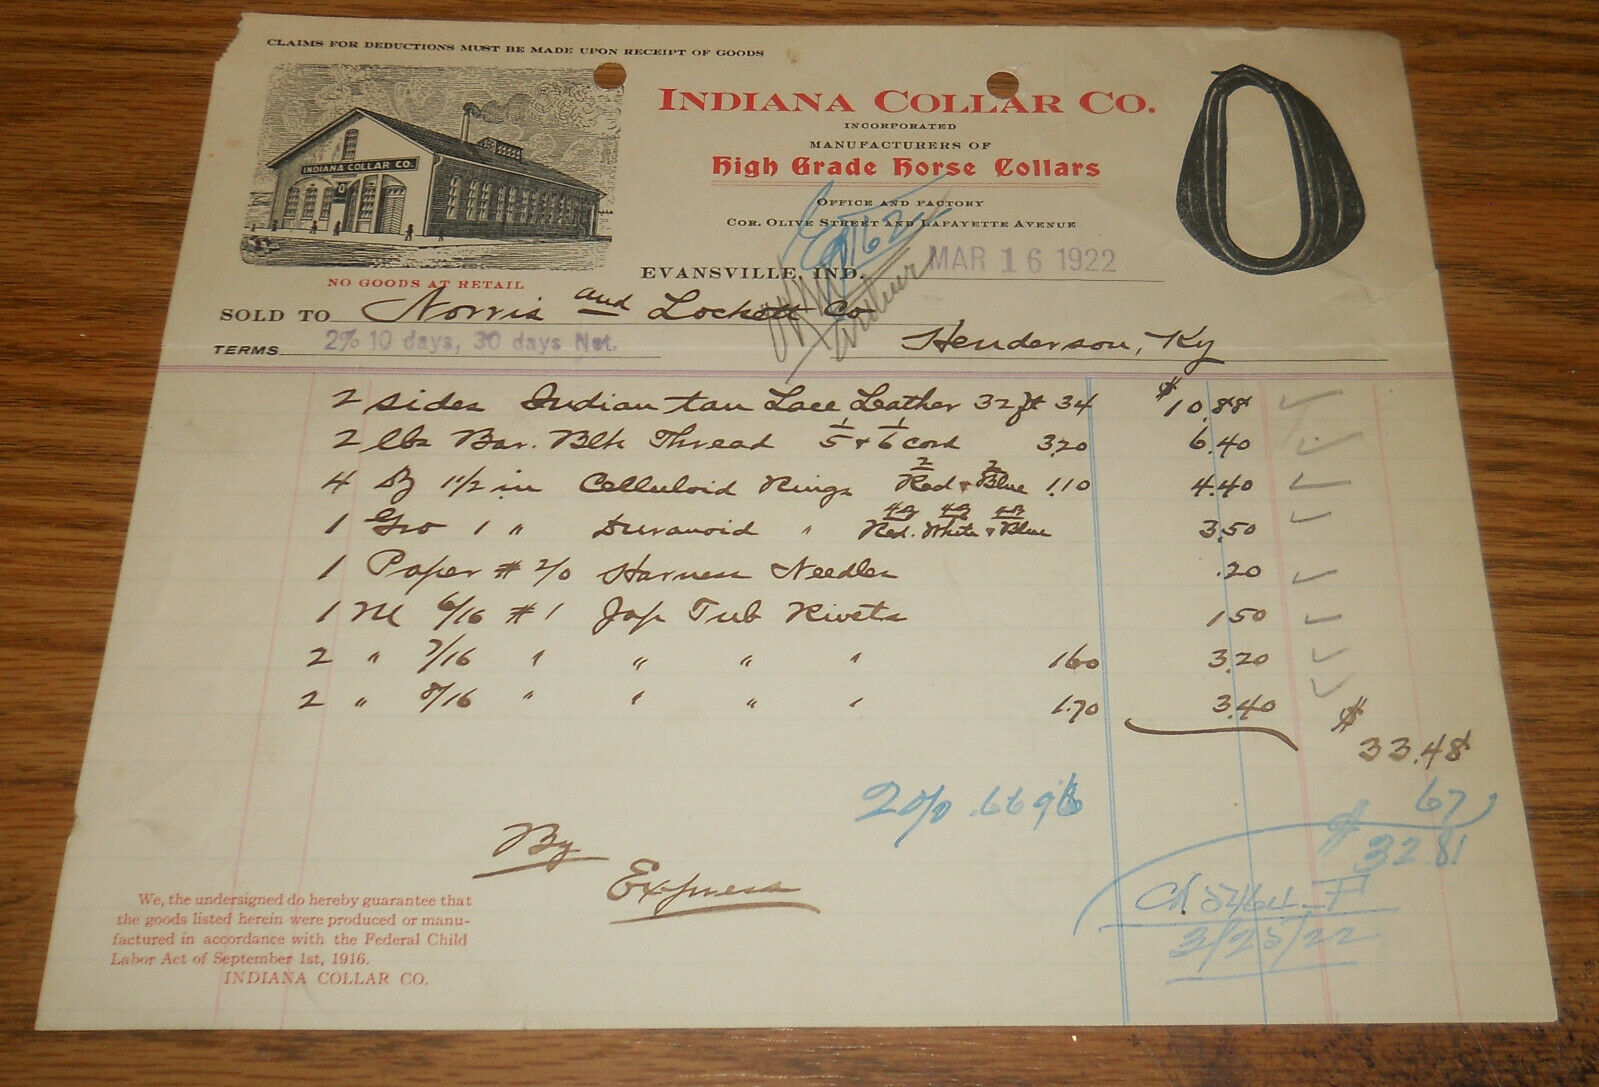 CLAIMS FOR DEDUCTIONS MUST BE MADE UPON RECEIPT OF GOODS
INDIANA COLLAR CO.
INDIANA COLLAR CO.
INCORPORATED
MANUFACTURERS OF
High Grade Horse Collars
OFFICE AND FACTORY
COR. OLIVE STREET AND LAFAYETTE AVENUE
EVANSVILLE, IND. MAR 16 1922
NO GOODS AT RETAIL
SOLD TO Norris and Lockett Co
Henderson, Ky
TERMS 2% 10 days, 30 days Net.
2 sides Indian tan Lace Leather 32 ft 34 $10.88
2 lbs Bar. Blk Thread 1/5 & 1/6 cord 3.20 6.40
4 Dz 1 1/2 in Celluloid Rings 2 Red & 2 Blue 1.10 4.40
1 Gro 1 " Duranoid " 4 Dz Red. 4 Dz White & 4 Dz Blue 3.50
1 Paper # 2/0 Harness Needles .20
1 M 6/16 # 1 Jap Tub Rivets 1.50
2 " 7/16 " " " " 1.60 3.20
2 " 8/16 " " " " 1.70 3.40
$33.48
2% .6696 67
$32.81
By Express
Ch
3/25/22
We, the undersigned do hereby guarantee that
the goods listed herein were produced or manu-
factured in accordance with the Federal Child
Labor Act of September 1st, 1916.
INDIANA COLLAR CO.